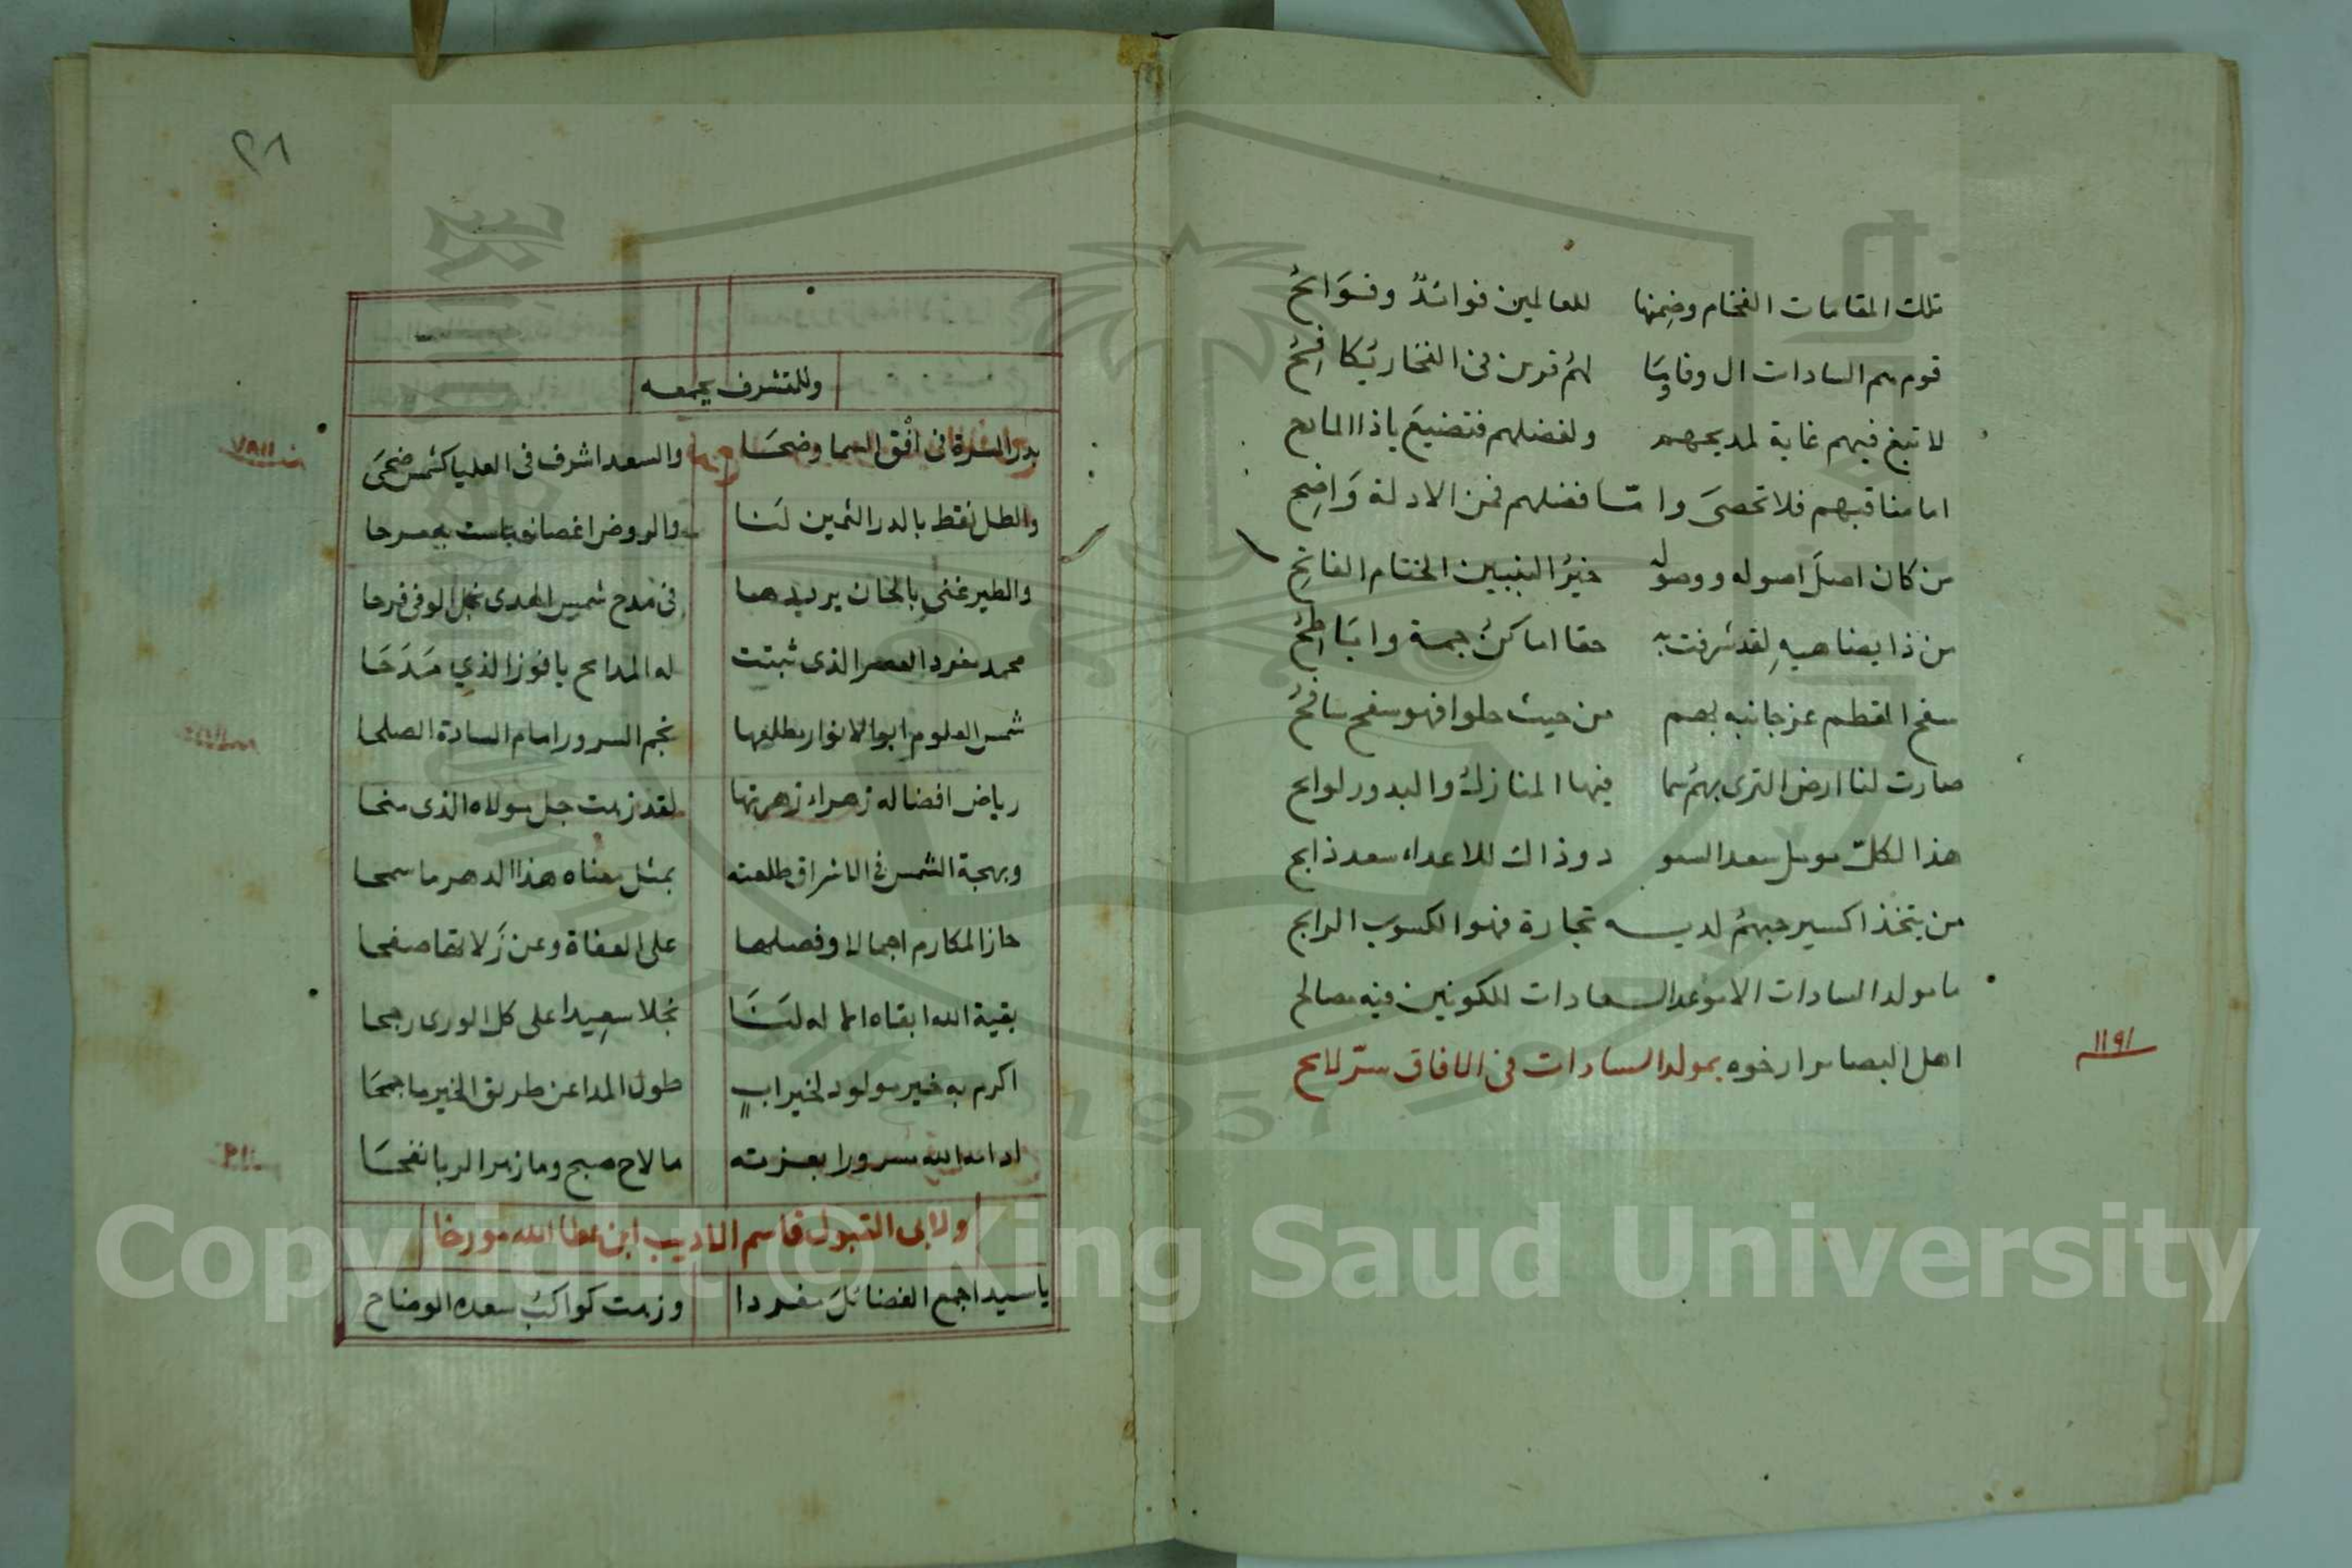 تلك المقامات الفخام وضمنها للعالمين فوائدٌ وفوَائحُ
قوم هم السادات ال وفا وسَا لهُم قرن فى الفخار يُكافِحُ
لا تبغ فيهم غاية لمديحهم ولفضلهم فتضيعَ ياذا المادح
اما مناقبهم فلا تحصىَ وا مّا فضلهم فمن الادلة وَاضِح
من كان اصلَ اصوله ووصوله خيرُ النبيين الختام الفاتح
من ذا يضاهيهِ لقد شرفت به حقا اماكنُ جمة واباطِحُ
سفح المقطم عز جانبه بهم من حيث حلوا فهو سفح سافحُ
صارت لنا ارض الثرى بهمُ سما فيها المنازلُ والبدور لوايح
هذا لكلّ موسل سعد السعو د وذاك للاعداء سعد ذابح
من يتخذ اكسير حبهمُ لديه تجارة فهو الكسوب الرابح
ما مولد السادات الا موعد السعادات للكونين فيه مصالح
اهل البصائر ارخوه بمولد السادات فى الافاق سرّ لايح
١١٩١
٢٨
وللمتشرف بجمعه
بدر المسرة فى افق السما وضحَا والسعد اشرف فى العليا كشمس ضحىَ
والطل نقط بالدر الثمين لنَا والروض اغصانه ماست به مرحا
والطير غنى بالحان يرددها فى مدح شمس الهدى نجل الوفى فرحا
محمد مفرد العصر الذى ثبتت له المدايح يا فوز الذي مَدَحَا
شمس العلوم ابو الانوار مطلعها نجم السرور امام السادة الصلحا
رياض افضاله زهراء زهرتها لقد زهت جل مولاه الذى منحا
وبهجة الشمس فى الاشراق طلعته بمثل معناه هذا الدهر ما سمحا
حاز المكارم اجمالا وفصلها على العفاة وعن زَلاتها صفحا
بقية الله ابقاه الاله لنَا نجلا سعِيدا على كل الورى رجحا
اكرم به خير مولود لخير ابٍ طول المدا عن طريق الخير ما جمحَا
ادامه الله مسرورا بعزته ما لاح صبح وما زهر الربا نفحَا
ولابى القبول قاسم الاديب ابن عطا الله مورخا
يا سيدا جمع الفضائلَ مفردا وزهت كواكبُ سعده الوضاح
Copyright © King Saud University
1957